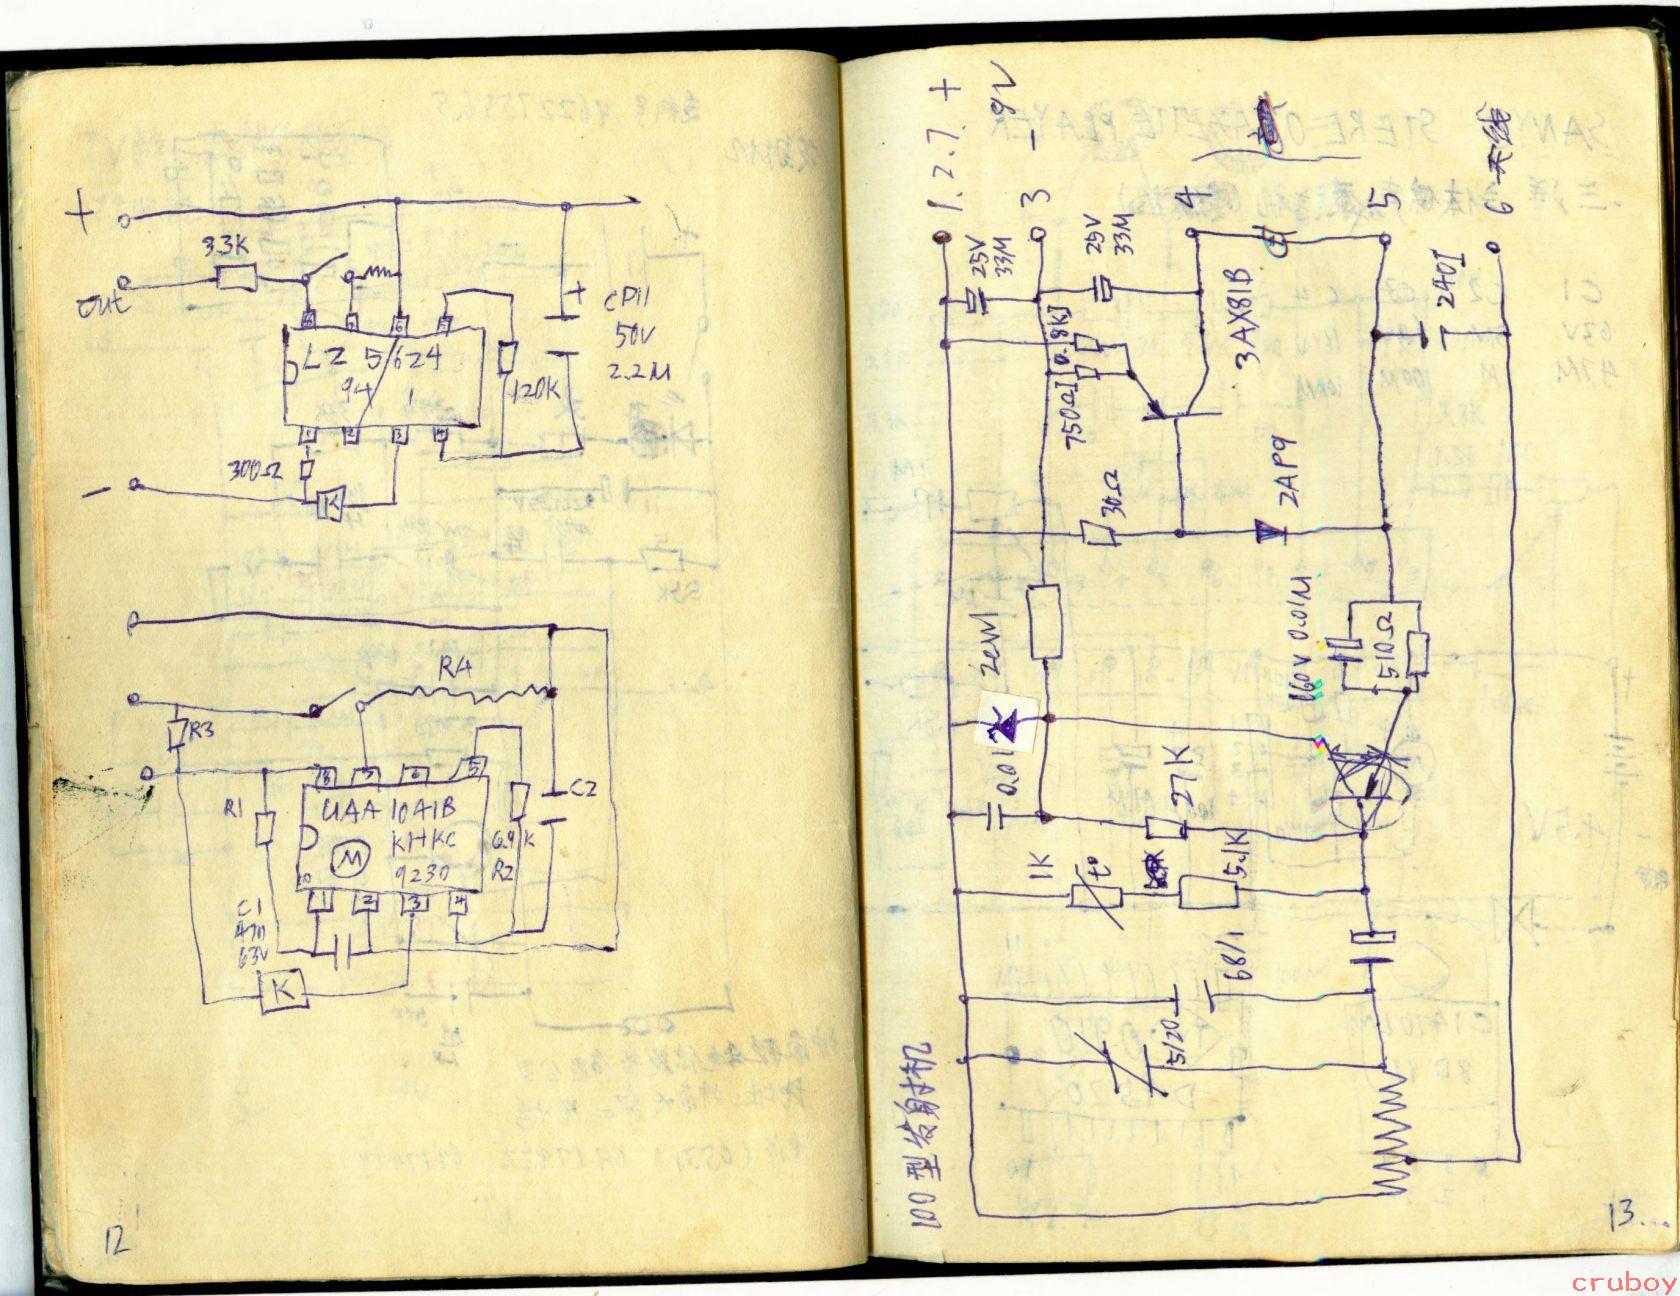 +
33K
out
LZ 5624
94 1
+
CD11
50V
2.2M
120K
8
7
6
5
1
2
3
4
300Ω
K
−
R4
R3
R1
8
7
6
5
UAA 1041B
KHKC
M
9230
69K
R2
C2
1
2
3
4
C1
47n
63V
K
12
1.2.7. +
3 - 9V
4
5
6 天线
25V
33M
25V
33M
3AX81B
240I
750Ω
30Ω
2AP9
2CW1
160V 0.01M
510Ω
0.01
27K
1K
t0
5.1K
68/1
5/20
100型发射机
13...
cruboy